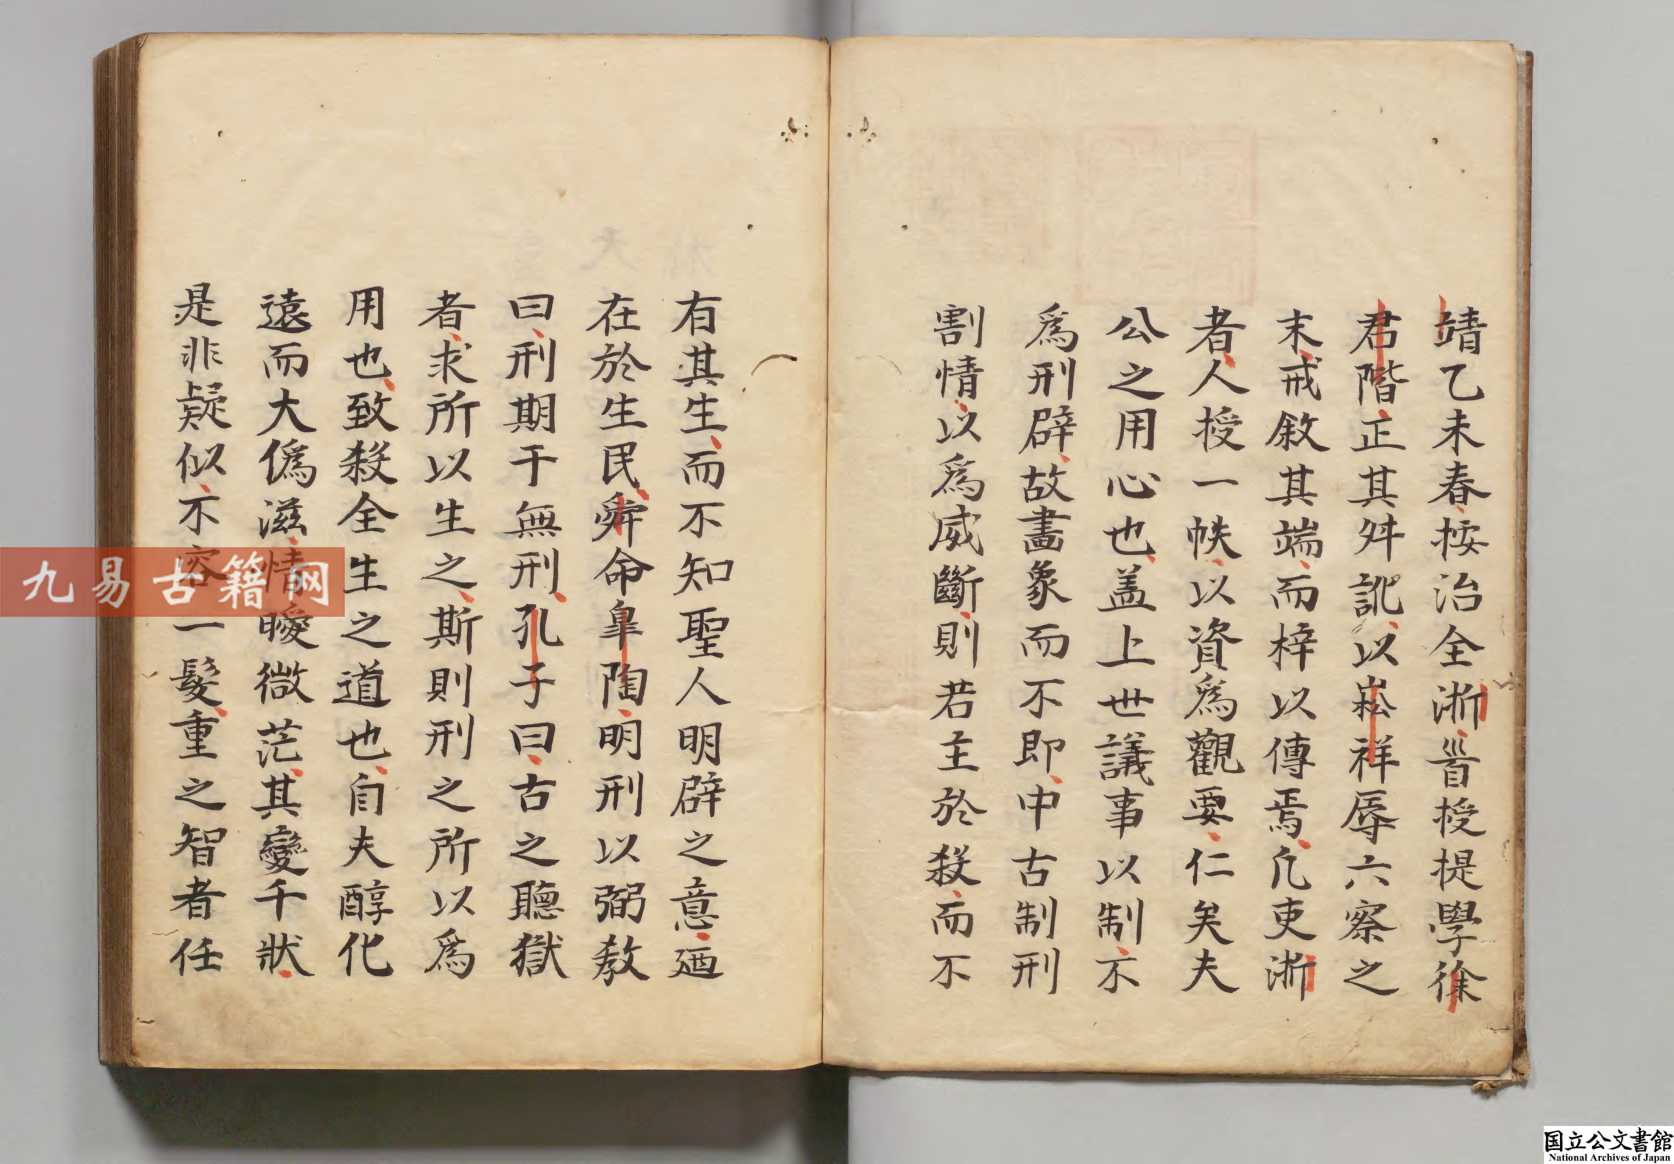 靖乙未春按治全浙首授提學徐
君階正其舛訛以崧祥辱六察之
末戒敘其端而梓以傳焉凡吏浙
者人授一帙以資爲觀要仁矣夫
公之用心也盖上世議事以制不
爲刑辟故畫象而不即中古制刑
割情以爲威斷則若主於殺而不
有其生而不知聖人明辟之意廼
在於生民舜命臯陶明刑以弼教
曰刑期于無刑孔子曰古之聽獄
者求所以生之斯則刑之所以爲
用也致殺全生之道也自夫醇化
遠而大僞滋情曖微茫其變千狀
是非疑似不容一髮重之智者任
九易古籍网
国立公文書館
National Archives of Japan